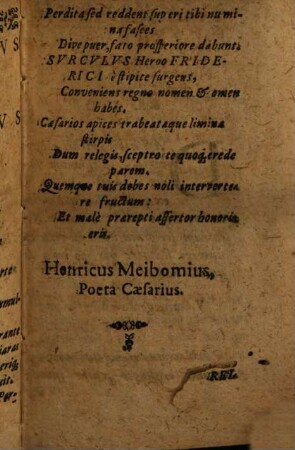 Perdita sed reddent superi tibi numi-
na fasces
Dive puer, fato prosperiore dabunt.
SVRCVLVS Heroo FRIDE-
RICI è stipite surgens,
Conveniens regno nomen & omen
habes.
Cæsarios apices trabeataque limina
stirpis
Dum relegis, sceptro te quoq; crede
parem.
Quemque tuis debes noli interverte-
re fructum:
Et malè prærepti assertor honoris
eris.
Henricus Meibomius,
Poeta Cæsarius.
REL